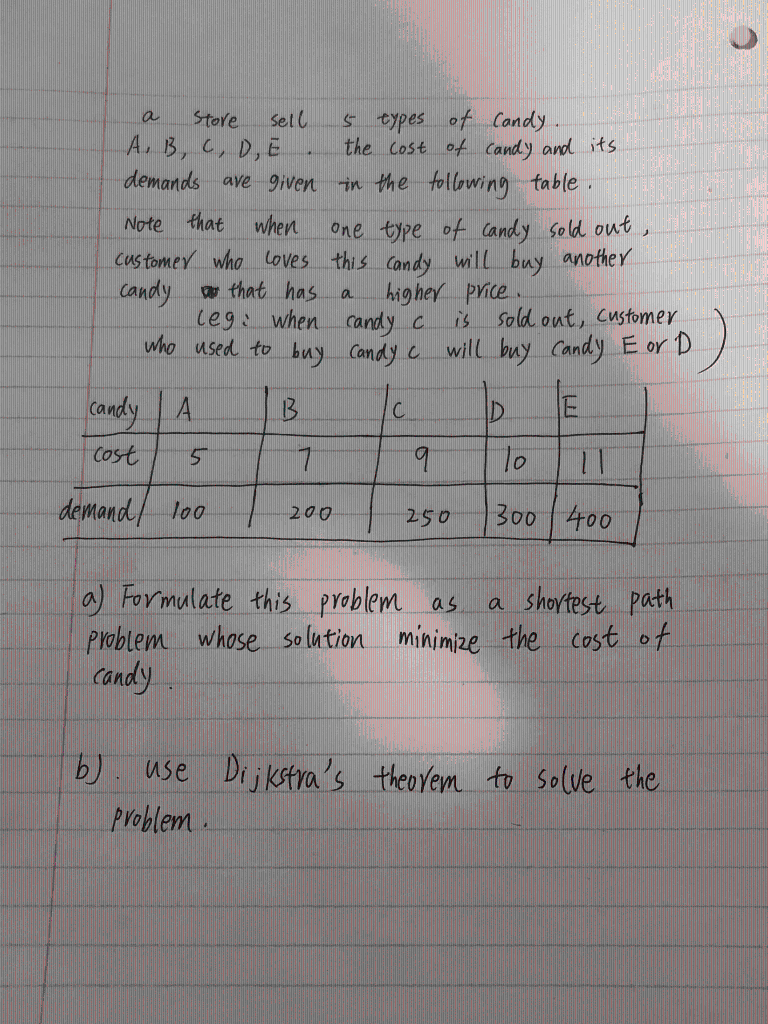 a store sell 5 types of Candy.
A, B, C, D, E . the cost of candy and its
demands are given in the following table.
Note that when one type of candy sold out,
customer who loves this candy will buy another
candy that has a higher price.
(eg: when candy c is sold out, customer
who used to buy candy c will buy candy E or D)
candy A B C D E
cost 5 7 9 10 11
demand 100 200 250 300 400
a) Formulate this problem as a shortest path
problem whose solution minimize the cost of
candy.
b). use Dijkstra's theorem to solve the
problem.